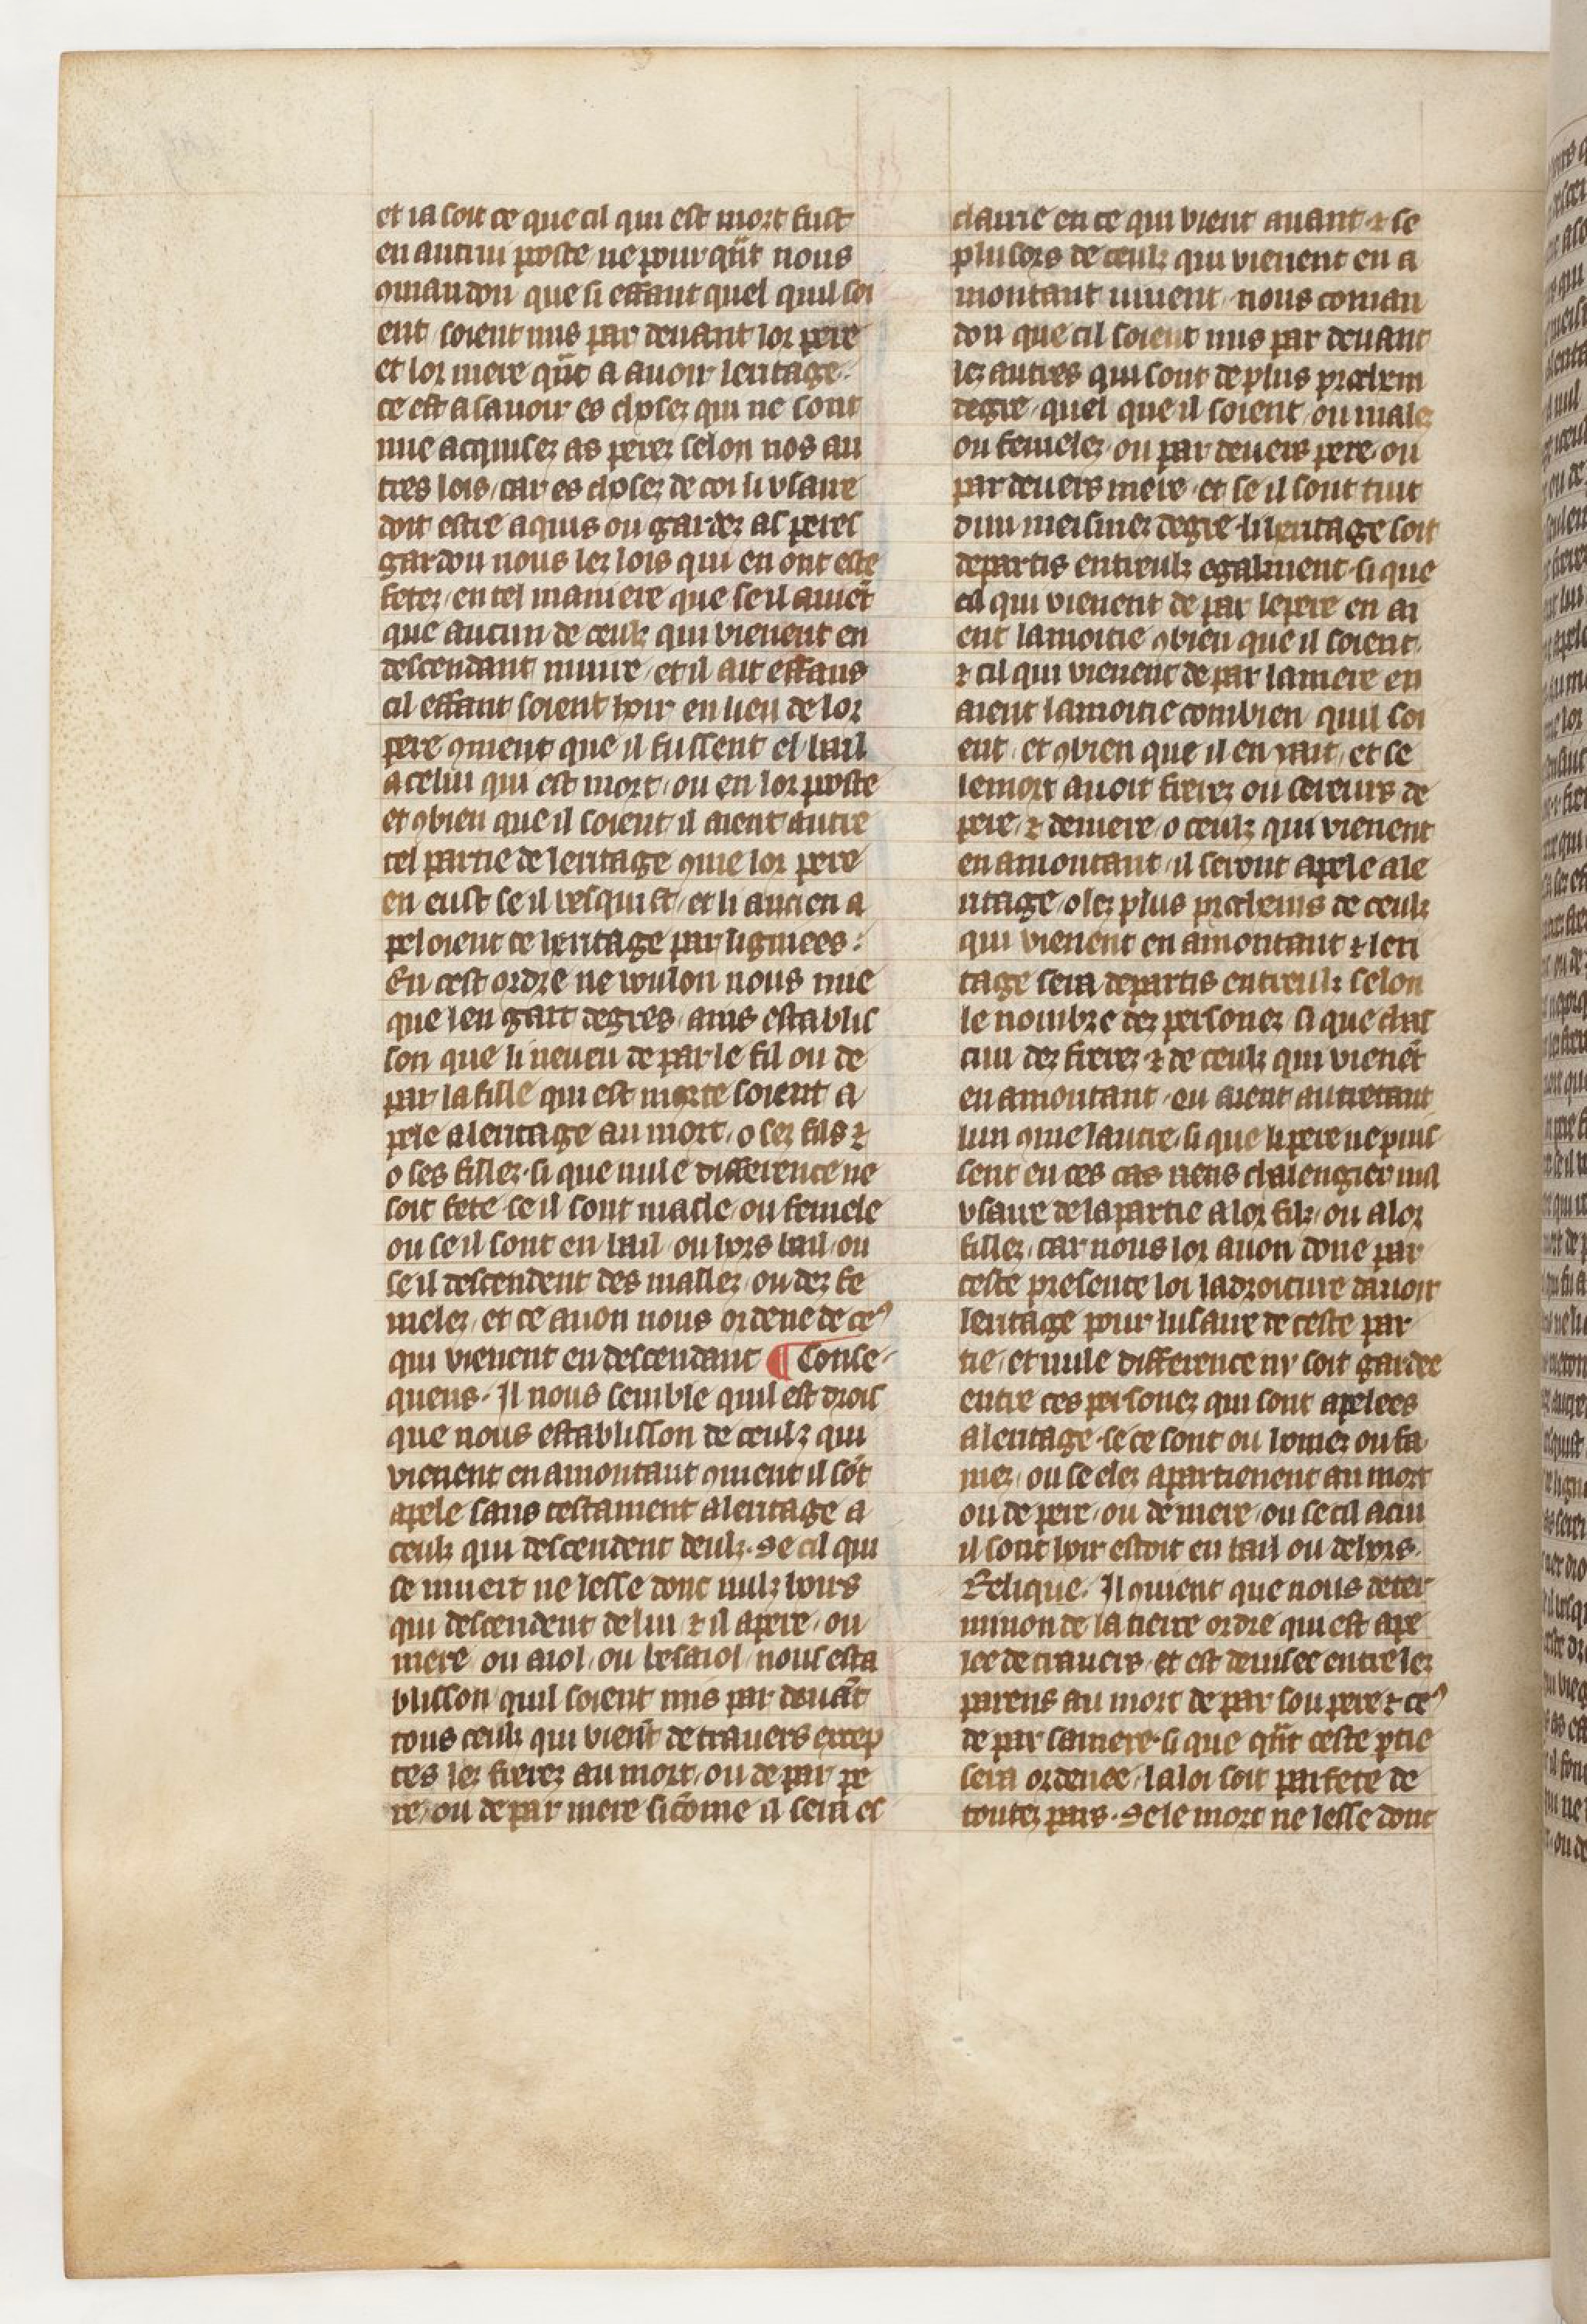 et ia soit ce que cil qui est mort fust
en autrui poste ne pour qũt nous
ꝯmandon que si effant quel quil soi
ent soient mis par deuant lor pere
et lor mere qũt a auoir leritage.
ce est a sauoir es choses qui ne sont
mie acquisez as perez selon nos au
tres lois car es chosez de coi li vsaire
doit estre aquis ou gardez as peres
gardon nous lez lois qui en ont este
fetez en tel maniere que se il auiẽt
que aucun de ceulz qui vienent en
descendant muire et il ait effans
cil effant soient hoir en lieu de lor
pere ꝯment que il fussent el bail
a celui qui est mort ou en lor poste
et ꝯbien que il soient il aient autre
tel partie de leritage ꝯme lor pere
en eust se il vesquist et li ancien a
peloient ce leritage par lignees:
En cest ordre ne voulon nous mie
que len gart degres ains establis
son que li neueu de par le fil ou de
par la fille qui est morte soient a
pele a leritage au mort o les fils ⁊
o les fillez si que nule difference ne
soit fete se il sont masle ou femele
ou se il sont en bail ou hors bail ou
se il descendent des maslez ou dez fe
melez et ce auon nous ordene de ceꝰ
qui vienent en descendant ¶ Conse
quens. Il nous semble quil est drois
que nous establisson de ceulz qui
vienent en amontant ꝯment il sõt
apele sans testament a leritage a
ceulz qui descendent deulz. Se cil qui
se muert ne lesse donc nulz hoirs
qui descendent de lui ⁊ il a pere ou
mere ou aiol ou besaiol nous esta
blisson quil soient mis par deuãt
tous ceulz qui vienẽt de trauers excep
tes lez frerez au mort ou de par pe
re ou de par mere si cõme il sera es
clairie en ce qui vient auant ⁊ se
plusors de ceulz qui vienent en a
montant viuent nous coman
don que cil soient mis par deuant
lez autres qui sont de plus prochein
degre quel que il soient ou malez
ou femelez ou par deuers pere ou
par deuers mere et se il sont tuit
dun meismez degre li heritage soit
departis entreulz egalment si que
cil qui vienent de par le pere en ai
ent la moitie ꝯbien que il soient
⁊ cil qui vienent de par la mere en
aient la moitie combien quil soi
ent et ꝯbien que il en y ait et se
le mort auoit frerez ou sereurs de
pere ⁊ de mere o ceulz qui vienent
en amontant il seront apele a le
ritage o lez plus procheins de ceulz
qui vienent en amontant ⁊ leri
tage sera departis entreulz selon
le nombre dez personez si que chas
cun dez frerez ⁊ de ceulz qui vienẽt
en amontant en aient autretant
lun ꝯme lautre si que li pere ne puis
sent en ces cas riens chalengier nul
vsaire de la partie a lor filz ou a lor
fillez car nous lor auon done par
ceste presente loi la droiture dauoir
leritage pour lusaire de ceste par
tie et nule difference ny soit gardee
entre ces personez qui sont apelees
a leritage se ce sont ou homez ou fa
mez ou se elez apartienent au mort
ou de pere ou de mere ou se cil a cui
il sont hoir estoit en bail ou dehors.
Relique. Il ꝯuient que nous deter
minon de la tierce ordre qui est ape
lee de trauers et est deuisee entre lez
parens au mort de par son pere ⁊ ceꝰ
de par sa mere si que qũt ceste ꝑtie
sera ordenee la loi soit parfete de
toutez pars. Se le mort ne lesse donc